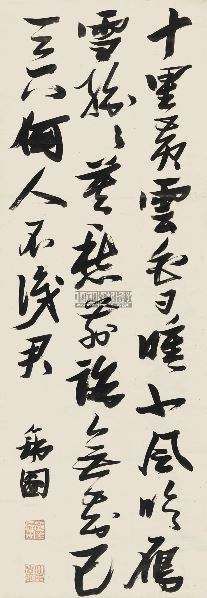 十里黃雲白日曛北風吹雁
雪紛〻莫愁前路無知己
天下何人不識君
瑞圖